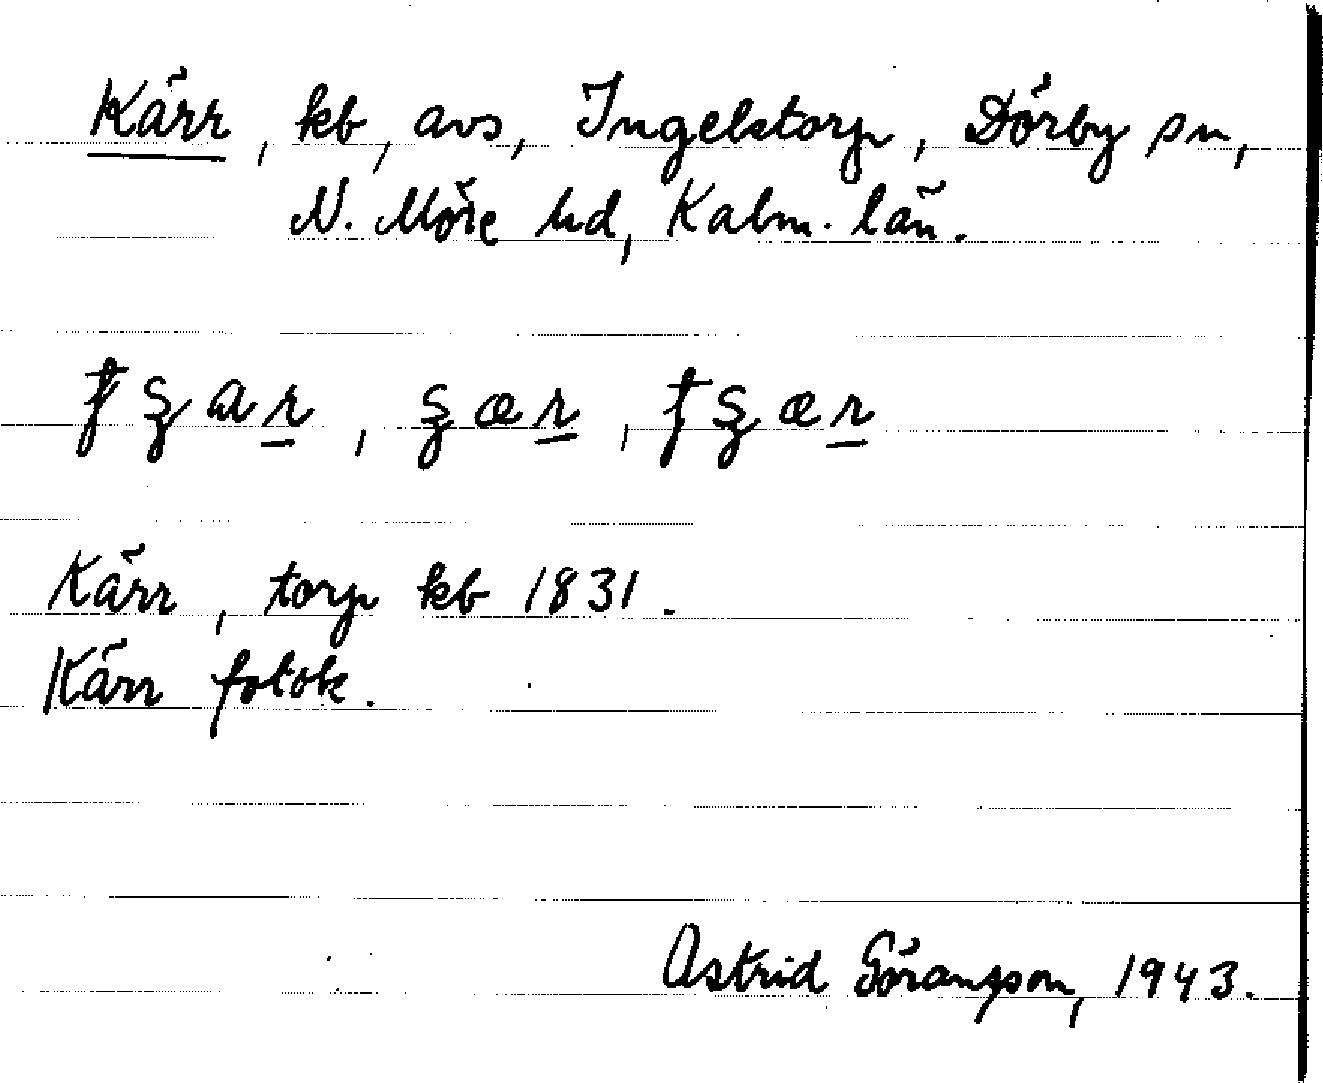 Kärr, kb, avs, Ingelstorp, Dörby sn,
N. Möre hd, Kalm. län.
Kärr, torp kb 1831.
Kärr fotok.
Astrid Göransson, 1943.